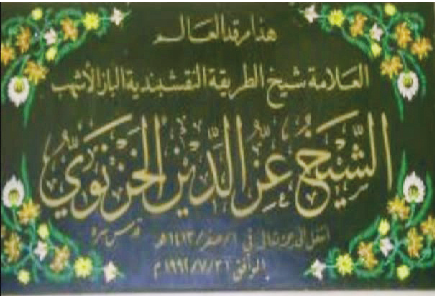 هذا مرقد العالم
العلامة شيخ الطريقة النقشبندية الباز الأشهب
الشيخ عز الدين الخزنوي
انتقل إلى رحمته تعالى في ١/صفر/١٤١٣هـ قدس سره
الموافق ٣١/٧/١٩٩٢م